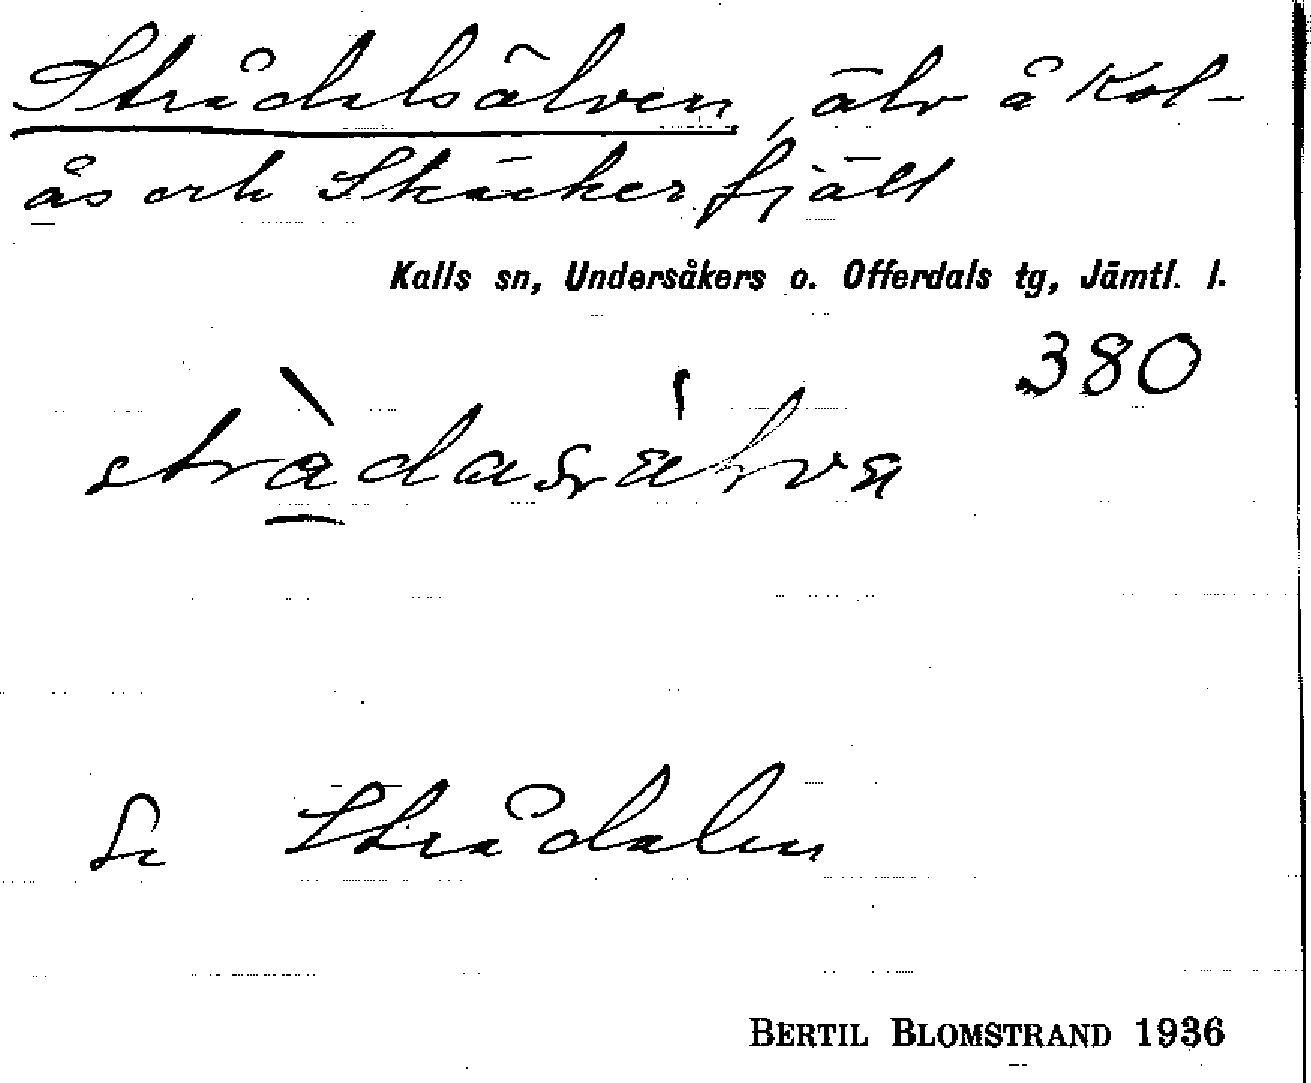 Strådalsälven, älv å Kol-
ås och Skäckerfjäll
Kalls sn, Undersåkers o. Offerdals tg, Jämtl. l.
380
Se Strådalen
BERTIL BLOMSTRAND 1936